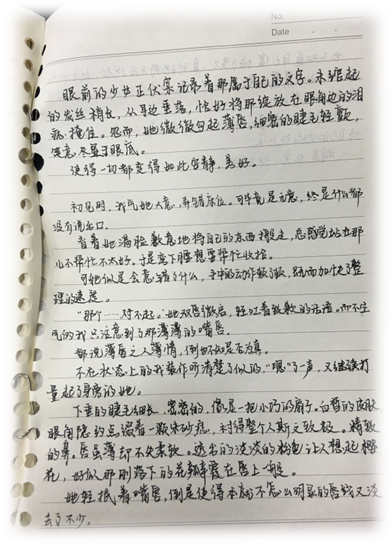 No.
Date
眼前的少女正伏案记录着那属于自己的文字。未绾起
的发丝稍长，从耳边垂落，恰好将那绽放在眼角边的泪
痣掩住。忽而，她微微勾起薄唇，细密的睫毛轻颤，
笑意尽显于眼底。
使得一切都变得如此安静，美好。
初见时，我气她大意，弄错床位。可毕竟是无意，终是什么都
没有说出口。
看着她满脸歉意地将自己的东西搬走，总感觉站在那
儿不帮忙不太好。于是蹲下腰想要帮忙收拾。
可她似是会意错了什么，手中的动作顿了顿，既而加快了整
理的速度。
“那个……对不起。”她双唇微启，轻吐着致歉的话语。而不生
气的我只注意到了那薄薄的嘴唇。
都说薄唇之人薄情，倒也不知是否为真。
不在状态上的我装作听清楚了似的“嗯”了一声，又继续打
量起了身旁的她。
下垂的睫毛细长，密密的，像是一把小巧的扇子。白皙的皮肤
眼角隐约点缀着一颗朱砂痣，衬得整个人斯文致极。精致
的鼻，唇虽薄却不失柔软。透出的淡淡的粉色让人想起樱
花，好似那刚落下的花瓣覆在唇上一般。
她轻抿着嘴唇，倒是使得本就不怎么明显的唇线又淡
去了不少。